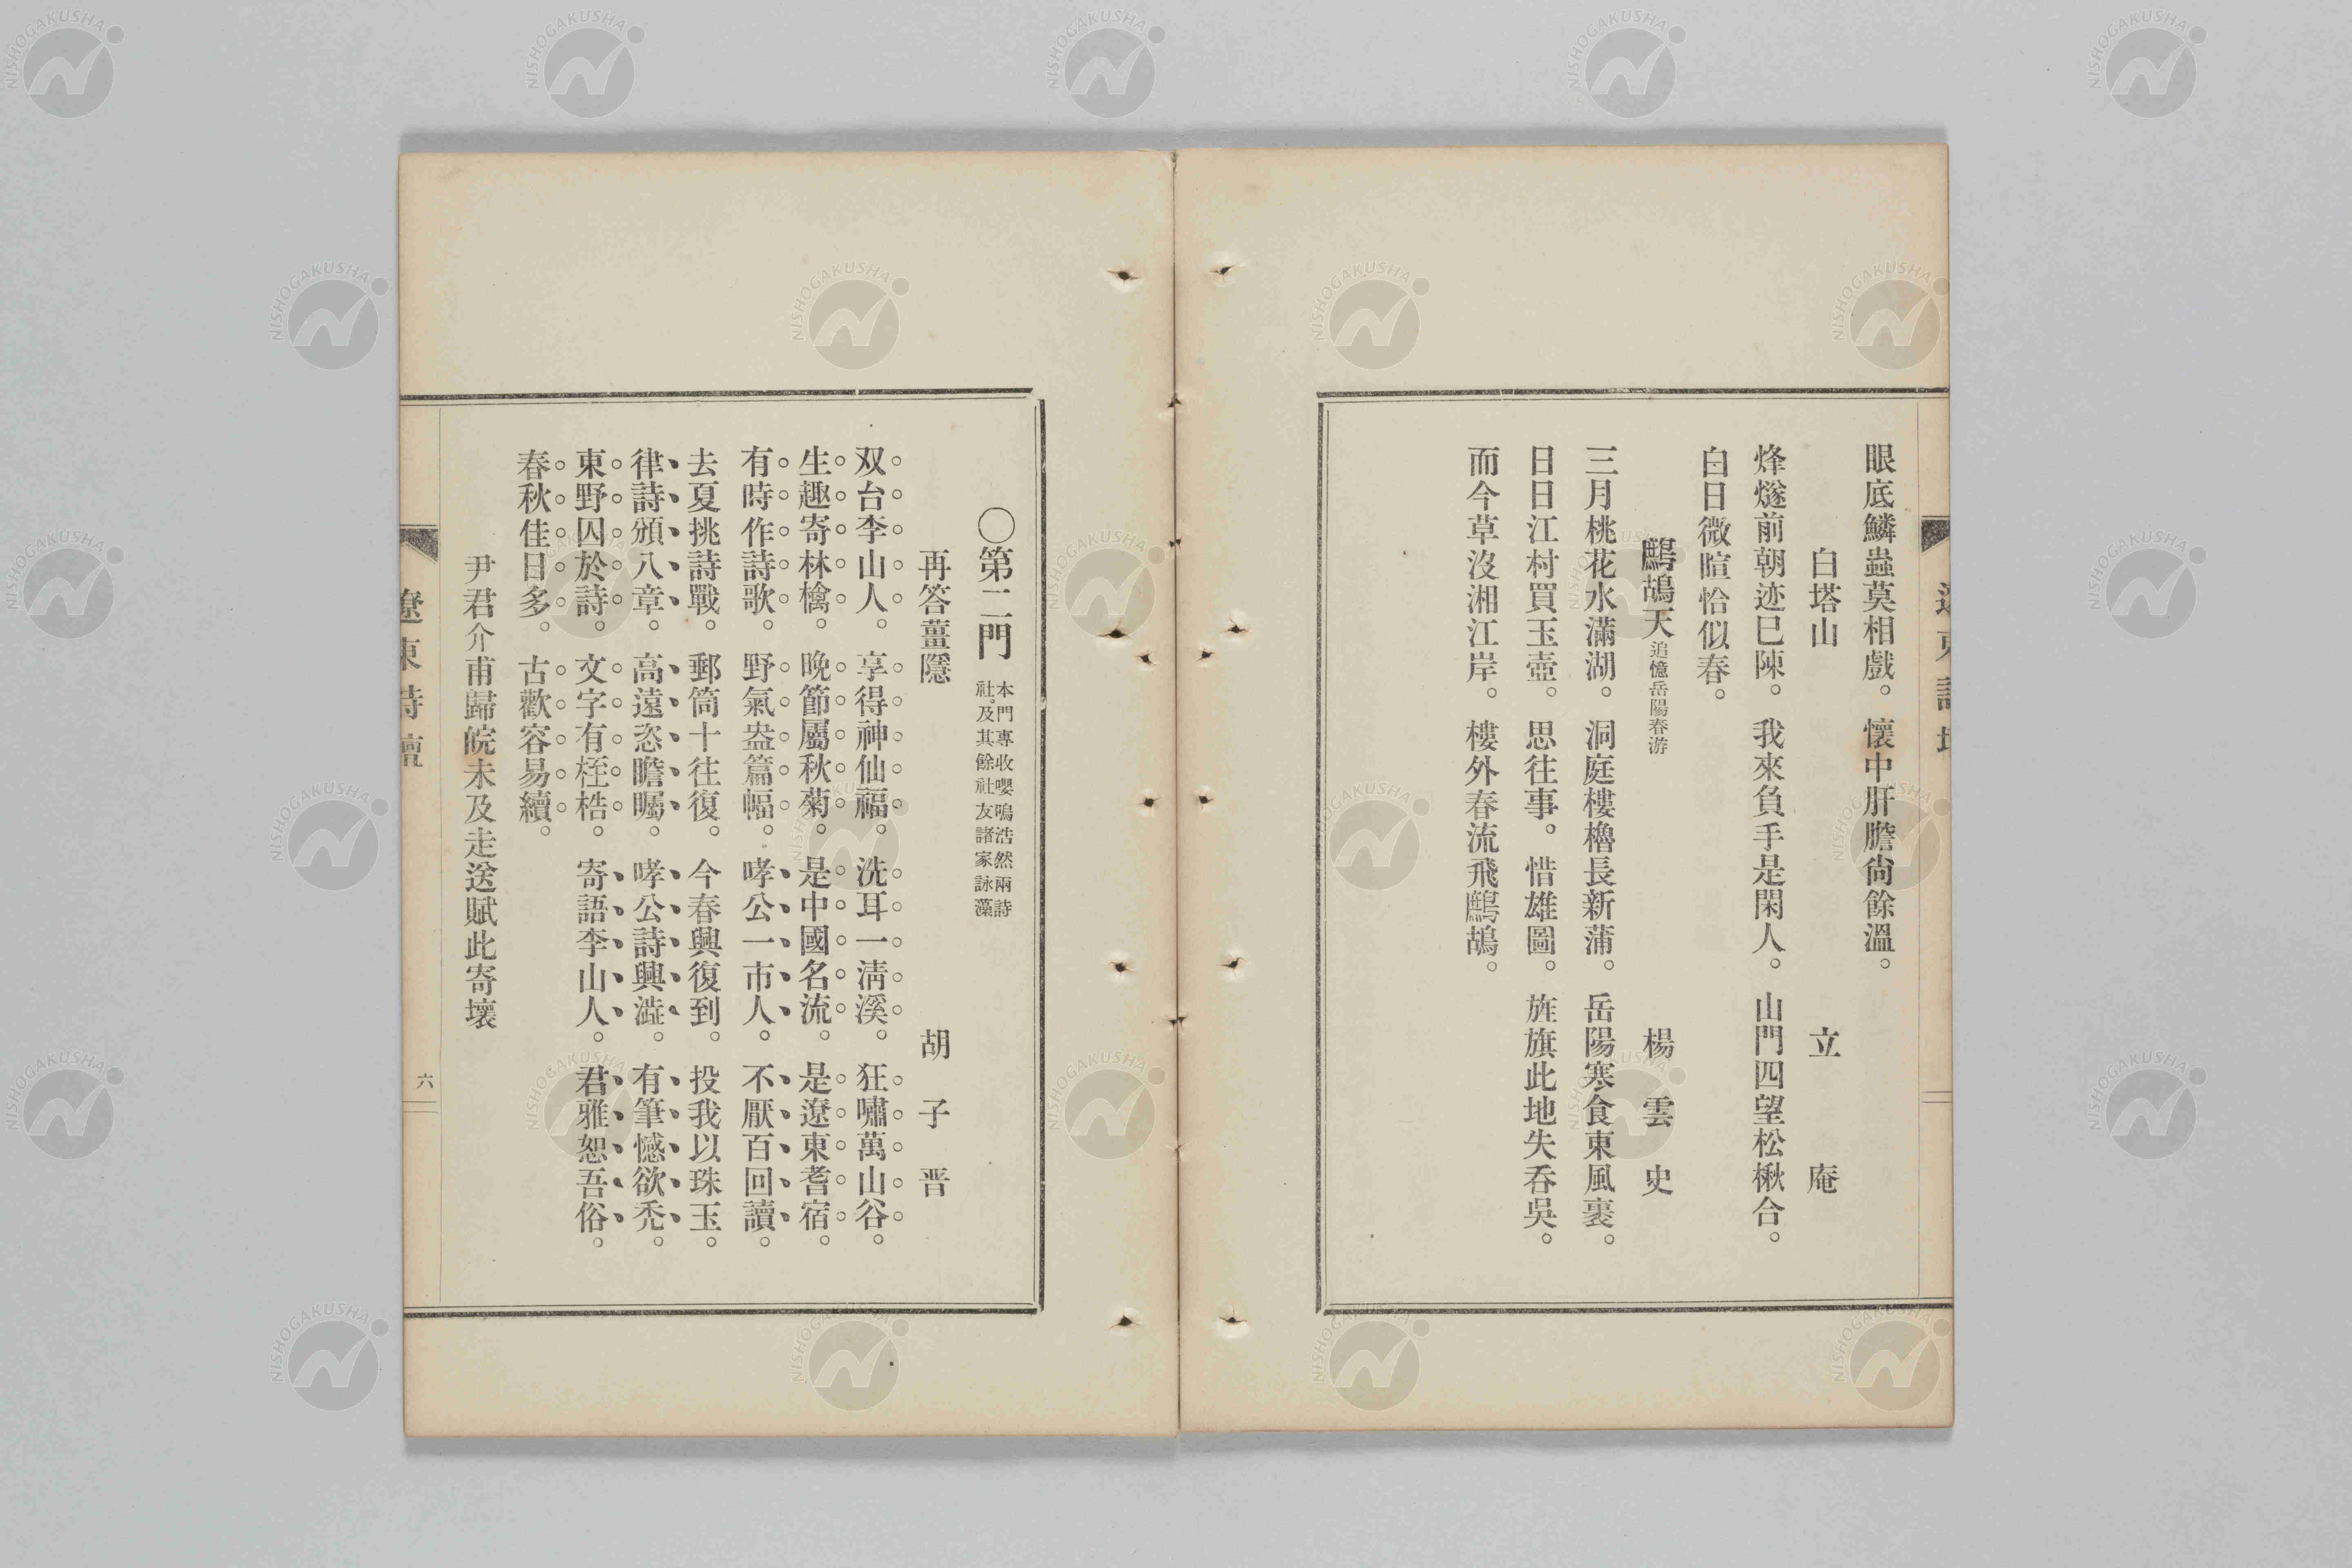 眼底鱗蟲莫相戲。懷中肝膽尙餘溫。
白塔山　立庵
烽燧前朝迹已陳。我來負手是閑人。山門四望松楸合。
白日微暄恰似春。
鷓鴣天 追憶岳陽春游　楊雲史
三月桃花水滿湖。洞庭樓櫓長新蒲。岳陽寒食東風裏。
日日江村買玉壺。思往事。惜雄圖。旌旗此地失吞吳。
而今草沒湘江岸。樓外春流飛鷓鴣。
〇第二門 本門專收嚶鳴浩然兩詩
社。及其餘社友諸家詠藻
再答薑隱　胡子晋
双台李山人。享得神仙福。洗耳一淸溪。狂嘯萬山谷。
生趣寄林檎。晚節屬秋菊。是中國名流。是遼東耆宿。
有時作詩歌。野氣盎篇幅。哮公一市人。不厭百回讀。
去夏挑詩戰。郵筒十往復。今春興復到。投我以珠玉。
律詩頒八章。高遠恣瞻矚。哮公詩興澁。有筆憾欲禿。
東野囚於詩。文字有桎梏。寄語李山人。君雅恕吾俗。
春秋佳日多。古歡容易續。
尹君介甫歸皖未及走送賦此寄壞
遼東詩壇
六
NISHOGAKUSHA